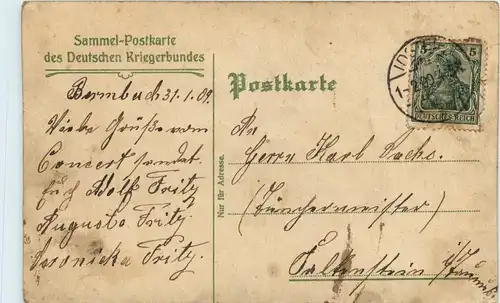 Sammel-Postkarte
des Deutschen Kriegerbundes
Postkarte
5 5
DEUTSCHES REICH
Nur für Adresse.
Bermbach 31.1.09.
Viele Grüße vom
Concert sendet
Euch Adolf Fritz
Augusta Fritz
Veronicka Fritz.
An
Herrn Karl Sachs.
(Tünchermeister)
Falkenstein i/Taunus